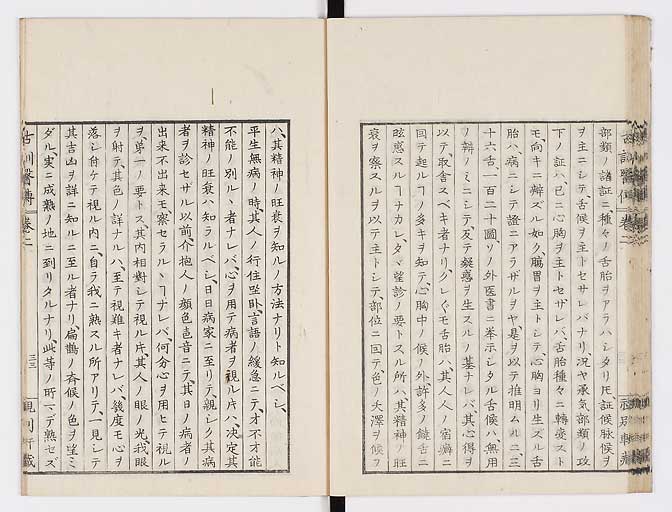 部類ノ諸証ニ種々ノ舌胎ヲアラハシタリ𪜈証候脉候ヲ
ヲ主ニシテ舌候ヲ主トセサレバナリ、況ヤ承気部類ノ攻
下ノ証ハ、已ニ心胸ヲ主トセザレバ、舌胎種々ニ轉変スト
モ向キニ辨ズル如ク、腸胃ヲ主トシテ心胸ヨリ生ズル舌
胎ハ、病ニシテ證ニアラザルヲヤ、是ヲ以テ推明ムルニ、三
十六舌、一百二十圖ソノ外医書ニ挙示シタル舌候ハ、無用
ノ辨ノミニシテ、反テ疑惑ヲ生スルノ基ナレバ、其心得ヲ
以テ、取舎スベキ者ナリ、クレ〲モ舌胎ハ、其人人ノ宿癖ニ
因テ起ルヿノ多キヲ知テ、心胸中ノ候ノ外許多ノ饒舌ニ
眩惑スルヿナカレ、タヾ望診ノ要トスル所ハ、其精神ノ旺
衰ヲ察スルヲ以テ主トシテ、部位ニ因テ色ノ夭澤ヲ候フ
ハ、其精神ノ旺衰ヲ知ルノ方法ナリト知ルベシ、
平生無病ノ時、其人ノ行住坐臥言語ノ緩急ニテ、才不才能
不能ノ別ルヽ者ナレバ、心ヲ用テ病者ヲ視ル片ハ、決定其
精神ノ旺衰ハ知ラルベシ、日日病家ニ至リテ、親シク其病
者ヲ診セザル以前、介抱人ノ顔色音ニテ、其日ノ病者ノ
出来不出来モ、察セラルヽヿナレバ、何分心ヲ用ヒテ視ル
ヲ、第一ノ要トス、其内相對シテ視ル片、其人ノ眼ノ光、我眼
ヲ射テ、其色ノ詳ナルハ、至テ視難キ者ナレバ、幾度モ心ヲ
落シ付ケテ視ル内ニ、自ラ我ニ熟スル所アリテ、一見シテ
其吉凶ヲ詳ニ知ルニ至ル者ナリ、扁鵲ノ斉候ノ色ヲ望ミ
ダル実ニ成熟ノ地ニ到リタルナリ、此等ノ所マデ熟セズ
古訓醫傳 巻二
三三